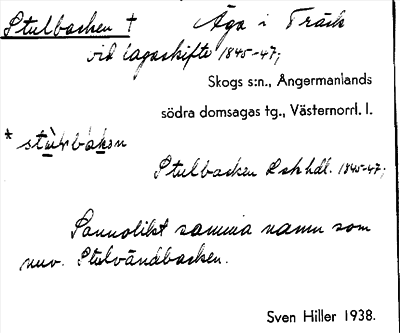 Stulbacken † Äga i Träsk
vid lagaskifte 1845-47;
Skogs s:n., Ångermanlands
södra domsagas tg., Västernorrl. l.
Stulbacken Lskhdl. 1845-47;
Sannolikt samma namn som
nuv. Stulvändbacken.
Sven Hiller 1938.